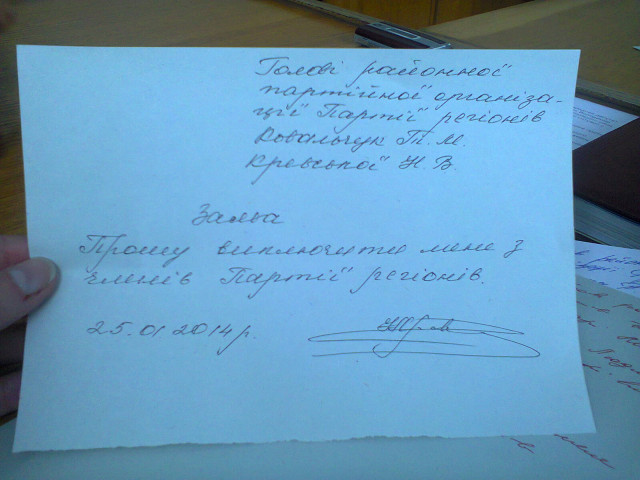 Голові районної
партійної організа-
ції Партії регіонів
Ковальчук Т. М.
Кревської Н. В.
Заява
Прошу виключити мене з
членів Партії регіонів.
25.01.2014р.